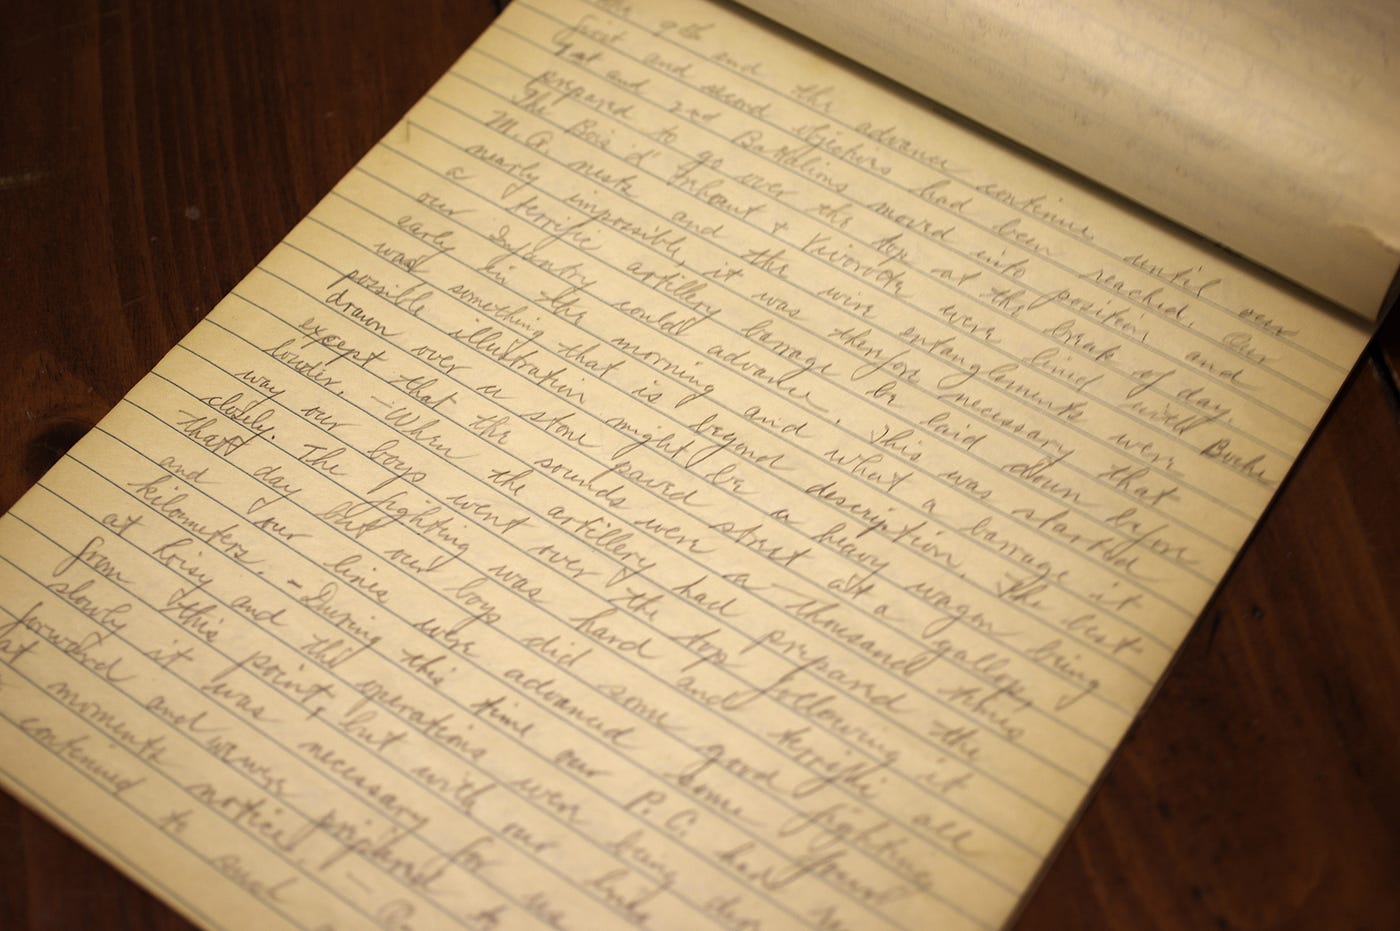 the 9th and the advance continue until our
first and second objectives had been reached. Our
1st and 2nd Battalions moved into position and
prepared to go over the top at the break of day.
The Bois d were lined with Boche
M. G. nests and the wire entanglements were
nearly impossible, it was therefore necessary that
a terrific artillery barrage be laid down before
our Infantry could advance. This was started
early in the morning and what a barrage it
was something that is beyond description. The best
possible illustration might be a heavy wagon being
drawn over a stone paved street at a gallop,
except that the sounds were a thousand times
louder. – When the artillery had prepared the
way our boys went over the top following it
closely. The fighting was hard and terrific all
that day but our boys did some good fighting
and our lines were advanced some four
kilometers. – During this time our P.C. had
at and the operations were being
from this point, but with our lines
slowly it was necessary for us
forward and prepared to
at moments notice. –
continued to such